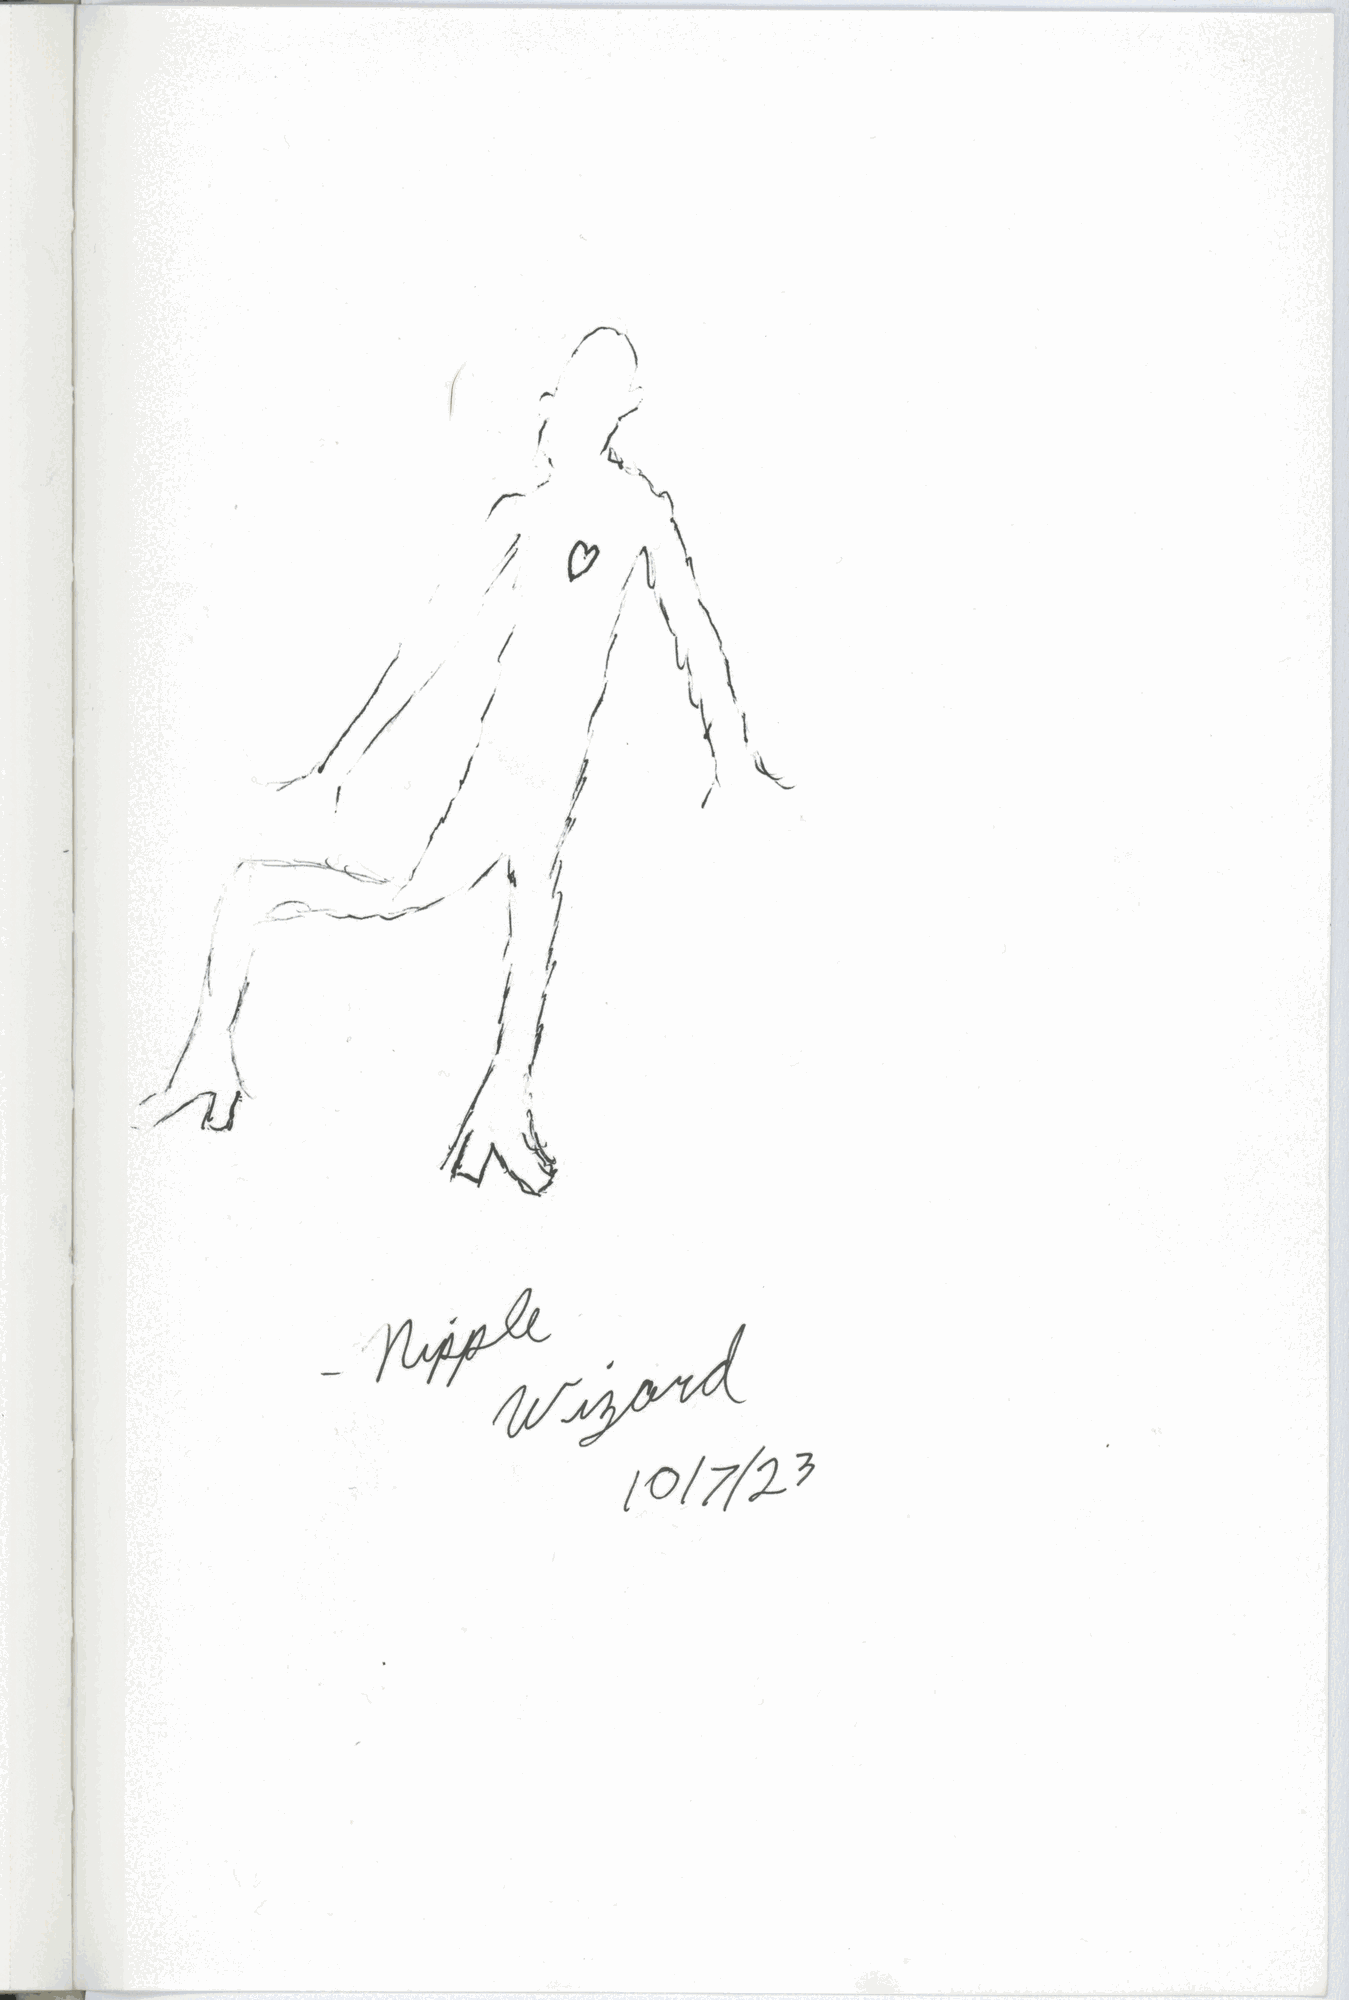 - Nipple
Wizard
10/7/23